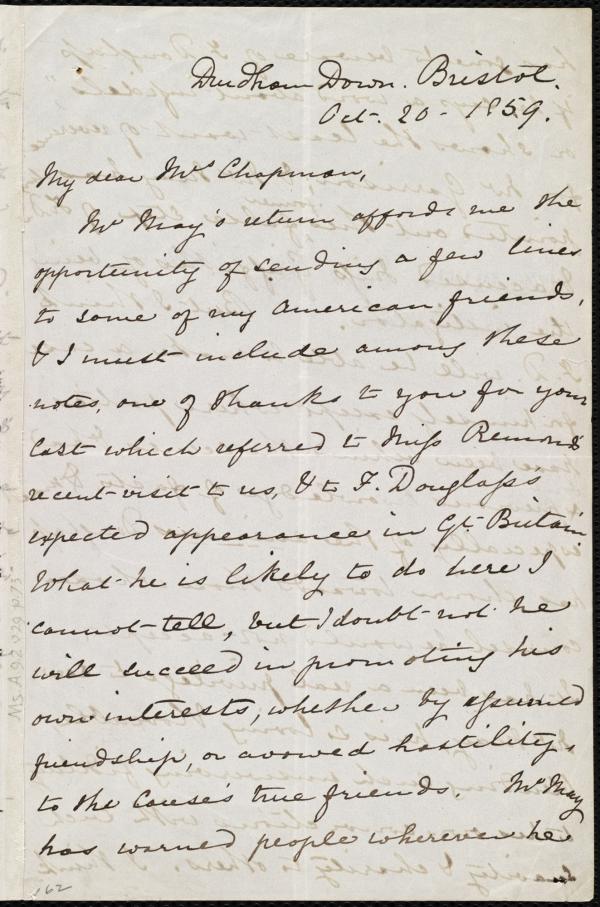 Durdham Down. Bristol.
Oct. 20 - 1859.
My dear Mrs Chapman,
Mr May's return affords me the
opportunity of sending a few lines
to some of my American friends,
& I must include among these
notes, one of thanks to you for your
last which referred to Miss Remond's
recent visit to us, & to F. Douglass's
expected appearance in Gt. Britain
What he is likely to do here I
cannot tell, but I doubt not he
will succeed in promoting his
own interests, whether by assumed
friendship, or avowed hostility,
to the Cause's true friends. Mr May
has warned people wherever he
Ms. A.9.2 v.29 p.75